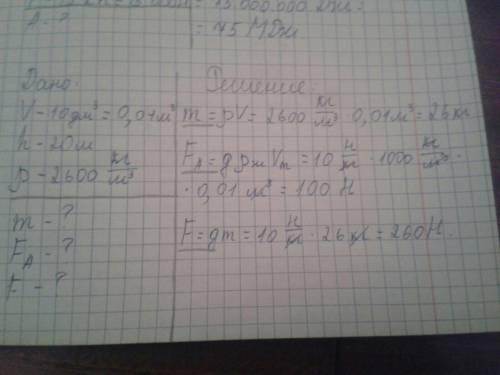 = 75 МДж
Дано:
V - 10дм³ = 0,01м³
h - 20м
ρ - 2600 кг/м³
m - ?
F_A - ?
F - ?
Решение:
m = ρV = 2600 кг/м³ · 0,01м³ = 26кг
F_A = gρжVт = 10 Н/кг · 1000 кг/м³ ·
· 0,01 м³ = 100 Н
F = gm = 10 Н/кг · 26 кг = 260Н.